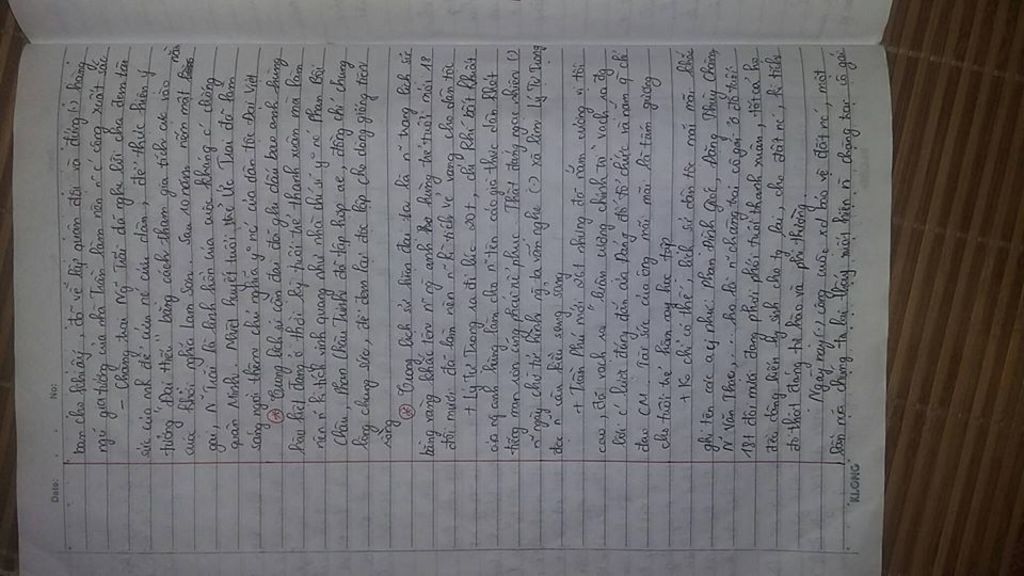 No:
Date:
ban cho khi ấy, đó về kíp quân đội và đứng (-) hàng
ngũ gia tướng của nhà Trần
- Chàng trai Ng̃ Trãi đã nghe lời cha đem tài
sức của mình để cứu nc cứu dân, để thực hiện ý
tưởng "Đại thiếu" bằng cách tham gia tích cực vào
cuộc khởi nghĩa Lam Sơn. Sau 10 năm nếm mật nằm
gai, N̄ Trãi là linh hồn của cuộc kháng c̄ chống
quân Minh. Nhiệt huyết tuổi trẻ Ức Trai đã làm
sáng ngời thêm chủ nghĩa y nc của dân tộc Đại Việt
(*) Trong lịch sử cận đại đã ghi dấu bao anh hùng
hào kiệt đang ở thời kỳ tuổi trẻ thanh xuân mà làm
nên n̄ kì tích vinh quang như nhà chí sĩ y nc Phan Bội
Châu, Phan Châu Trinh đã tập hợp các đồng chí chung
lòng chung sức, để đem lại độc lập cho dòng giống Tiên
Rồng
(*) Trong lịch sử hiện đại ta là n̄ trang lịch sử
bằng vàng khắc tên n̄ ng anh hùng từ tuổi mới 18
đôi mươi đã làm nên n̄ kì tích vẻ vang cho dân tộc
+ Lý Tự Trọng ra đi lúc 20t, chí khí bất khuất
của ng anh hùng làm cho n̄ tên cáo già thực dân khét
tiếng man rợn cũng phải nể phục. Thật đáng ngạc nhiên (-)
n̄ ngày chờ tử hình ng ta vẫn nghe (-) xà lim Lý Tự Trọng
đọc n̄ câu Kiều sang sảng
+ Trần Phú mới 26t nhưng đã nắm cương vị tối
cao, đã vạch ra "Luận cương chính trị" vạch ra đg
lối c̄ lược đúng đắn của Đảng đã tổ chức và nắm q chỉ
đạo CM. Tài đức của ông mãi mãi là tấm gương
cho tuổi trẻ hôm nay học tập
+ Ko chỉ có thế, lịch sử dân tộc mãi mãi khắc
ghi tên các a,c như: Phan Đình Giót, Đặng Thùy Trâm,
N̄ Văn Thạc,... cho tới n̄ chàng trai cô gái ở độ tuổi
18t đôi mươi đang phơi phới tuổi thanh xuân, tất cả họ
đều cống hiến hy sinh cho tự do, cho đất nc, kì tích
đó thật đáng tự hào và phi thường
Ngày nay, (-) công cuộc xây bảo vệ đất nc, một
lần nữa chúng ta lại thấy xuất hiện n̄ chàng trai cô gái
KLONG